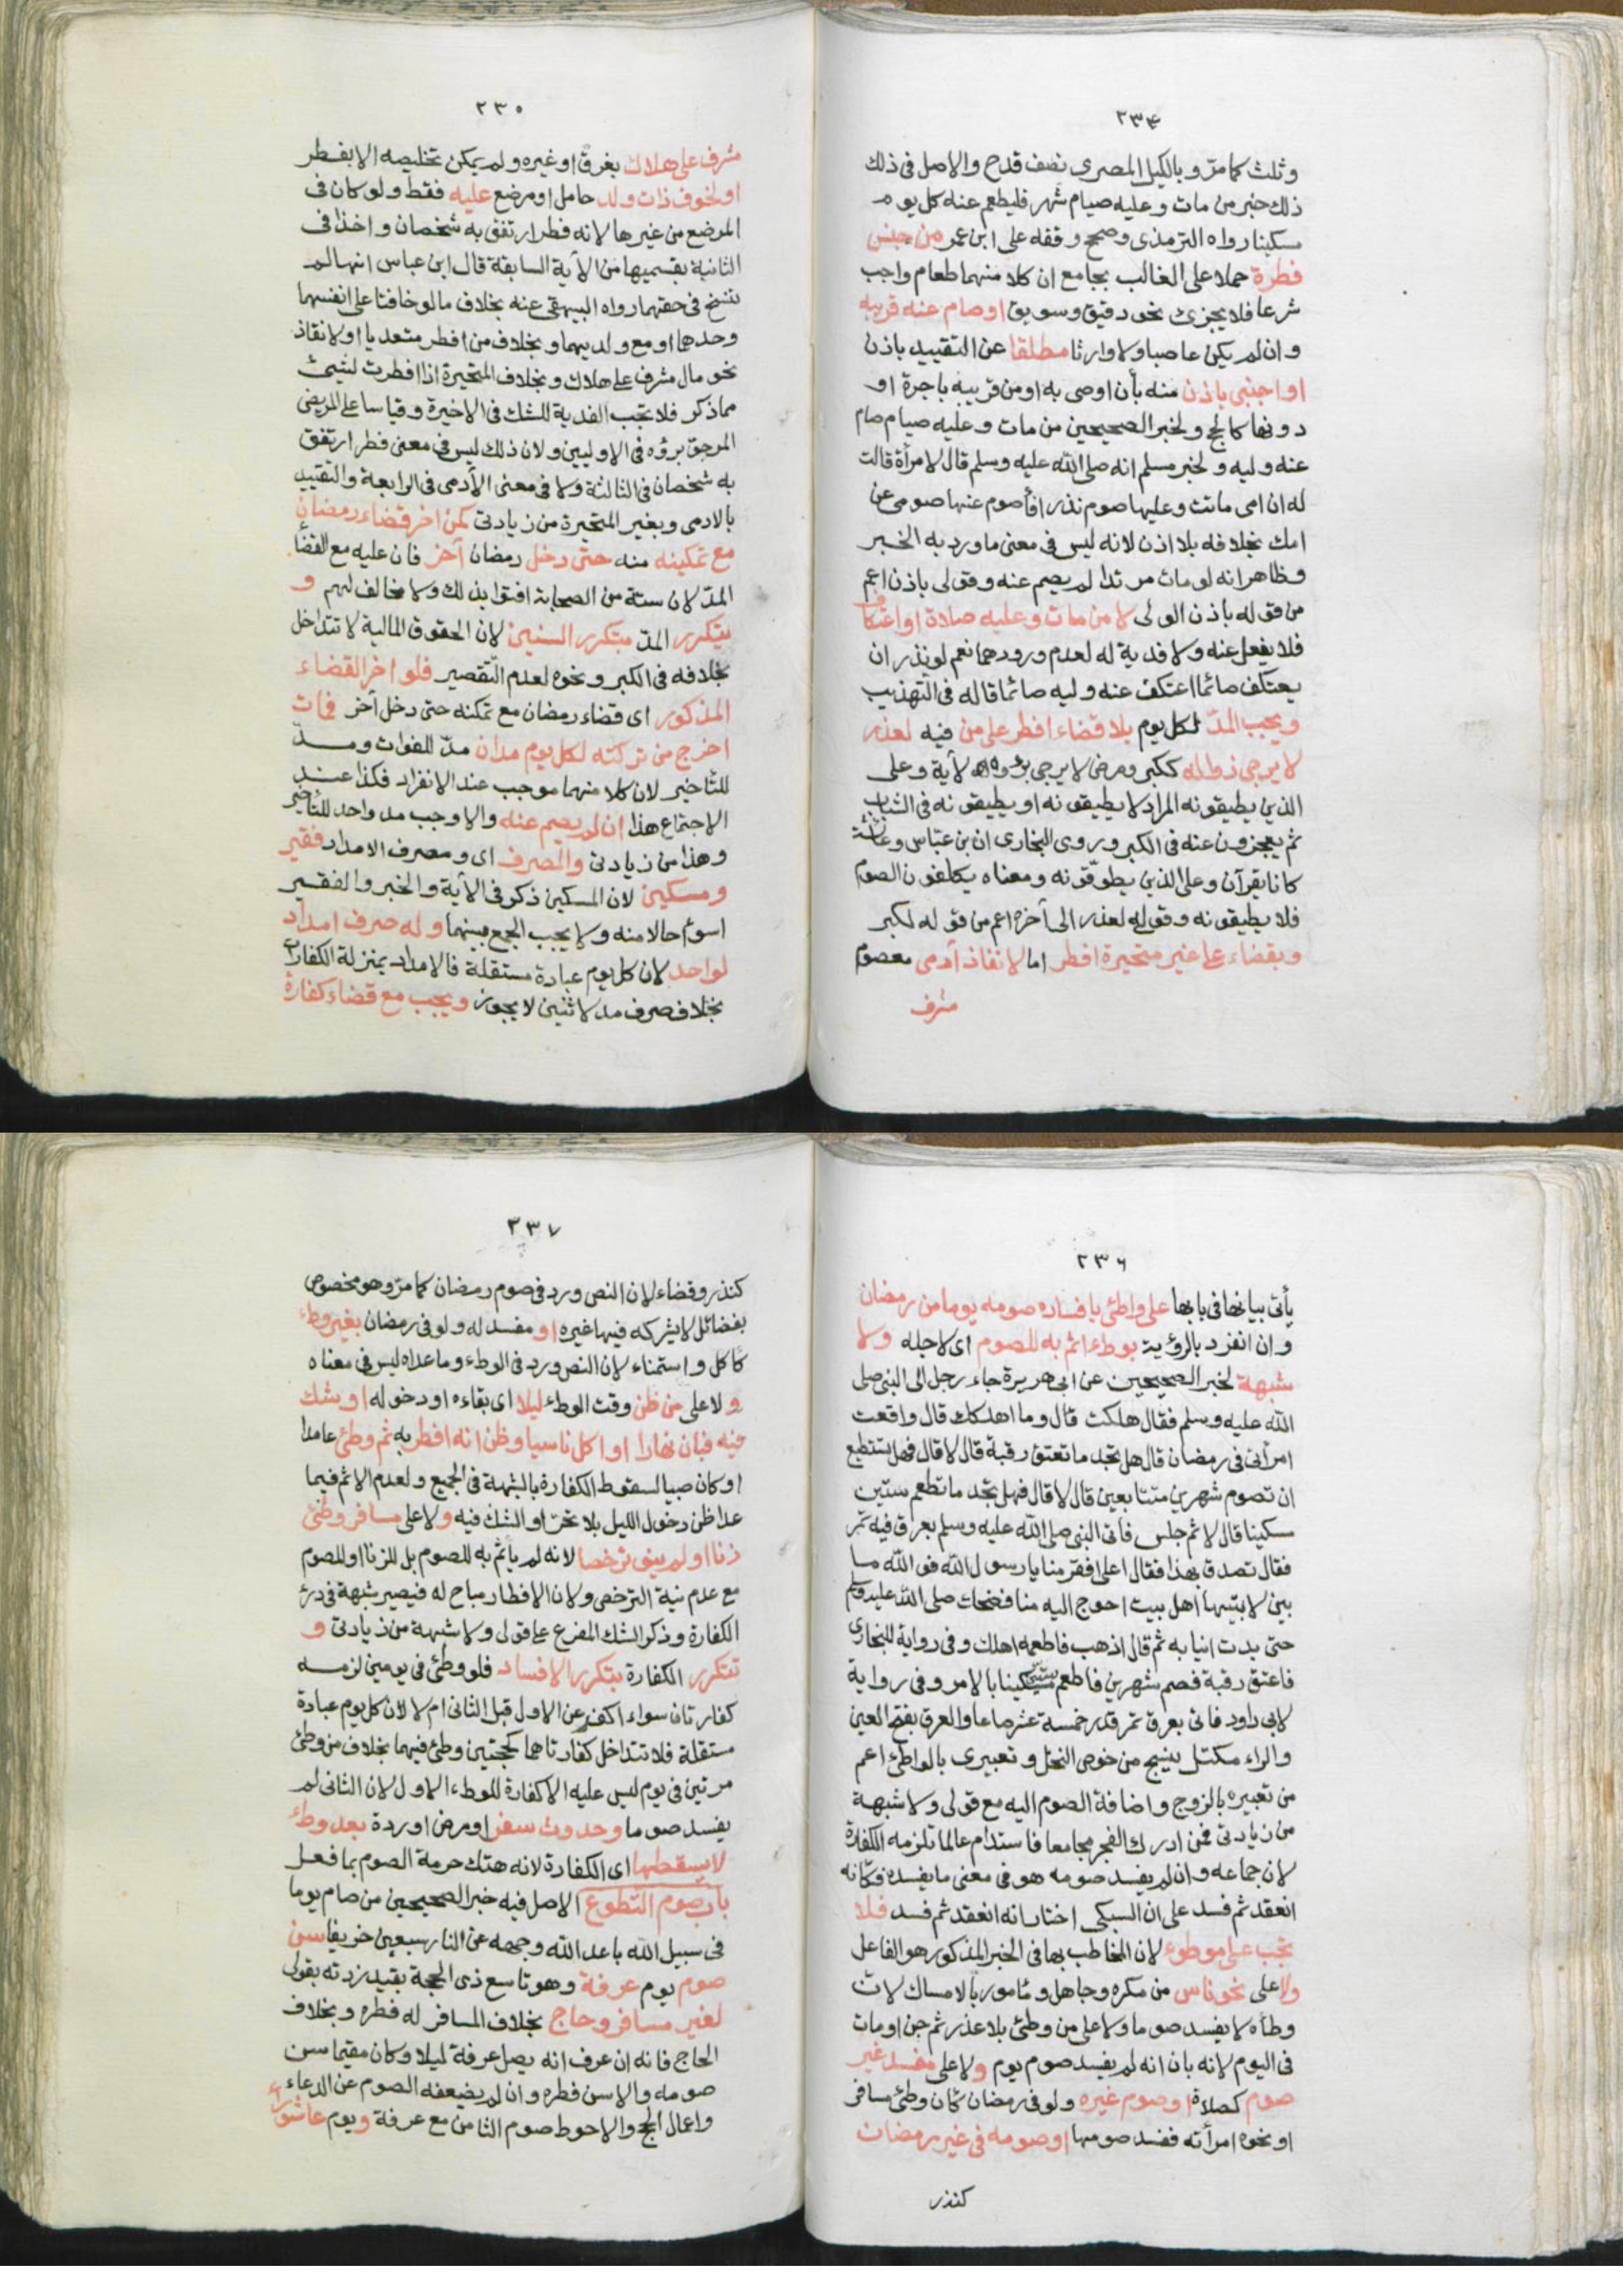 ٢٣٤
وثلث كما مرّ وبالكيل المصري نصف قدح والاصل في ذلك
ذلك خبر من مات وعليه صيام شهر فليطعم عنه كل يوم
مسكينا رواه الترمذي وصحح وقفه على ابن عمر من جنس
فطرة حملا على الغالب بجامع ان كلا منهما طعام واجب
شرعا فلا يجزئ نحو دقيق وسويق او صام عنه قريبه
وان لم يكن عاصبا ولا وارثا مطلقا عن التقييد باذن
او اجنبي باذن منه بأن اوصى به او من قريبه باجرة او
دونها كالحج ولخبر الصحيحين من مات وعليه صيام صام
عنه وليه ولخبر مسلم انه صلى الله عليه وسلم قال لامرأة قالت
له ان امي ماتت وعليها صوم نذر افأصوم عنها صومي عن
امك بخلافه بلا اذن لانه ليس في معنى ما ورد به الخبر
وظاهر انه لو مات مرتدا لم يصم عنه وقولي باذن اعم
من قوله بأذن الولي لا من مات وعليه صلاة او اعتكاف
فلا يفعل عنه ولا فدية له لعدم ورودهما نعم لو نذر ان
يعتكف صائما اعتكف عنه وليه صائما قاله في التهذيب
ويجب المدّ لكل يوم بلا قضاء افطر على من فيه لعذر
لا يرجى زواله ككبر ومرض لا يرجى برؤه لأية وعلى
الذين يطيقونه المراد لا يطيقونه او يطيقونه في الشباب
ثم يعجزون عنه في الكبر وروى البخاري ان بن عباس وعائشة
كانا يقرآن وعلى الذين يطوّقونه ومعناه يكلفون الصوم
فلا يطيقونه وقوله لعذر الى آخره اعم من قوله لكبر
وبقضاء على غير متحيرة افطر اما لانقاذ آدمي معصوم
مشرف
٢٣٥
مشرف على هلاك بغرق او غيره ولم يمكن تخليصه الا بفطر
او لخوف ذات ولد حامل او مرضع عليه فقط ولو كان في
المرضع من غيرها لانه فطر ارتفق به شخصان واخذا في
الثانية بقسميها من الأية السابقة قال ابن عباس انها لم
تنسخ في حقهما رواه البيهقي عنه بخلاف ما لو خافتا على انفسهما
وحدهما او مع ولديهما وبخلاف من افطر متعديا او لانقاذ
نحو مال مشرف على هلاك وبخلاف المتحيرة اذا افطرت لشيئ
مما ذكر فلا تجب الفدية للشك في الاخيرة وقياسا على المريض
المرجو برؤه في الاوليين ولان ذلك ليس في معنى فطر ارتفق
به شخصان في الثالثة ولا في معنى الأدمي في الرابعة والتقييد
بالادمي وبغير المتحيرة من زيادتي كمن اخر قضاء رمضان
مع تمكينه منه حتى دخل رمضان آخر فان عليه مع القضا
المدّ لان ستة من الصحابة افتوا بذلك ولا مخالف لهم و
يتكرر المدّ بتكرر السنين لان الحقوق المالية لا تتداخل
بخلافه في الكبر ونحوه لعدم التقصير فلو اخر القضاء
المذكور اي قضاء رمضان مع تمكنه حتى دخل آخر فمات
اخرج من تركته لكل يوم مدان مدّ للفوات ومدّ
للتأخير لان كلا منهما موجب عند الانفراد فكذا عند
الاجتماع هذا ان لم يصم عنه والا وجب مد واحد للتأخير
وهذا من زيادتي والمصرف اي ومصرف الامداد فقير
ومسكين لان المسكين ذكر في الأية والخبر والفقير
اسوأ حالا منه ولا يجب الجمع بينهما وله صرف امداد
لواحد لان كل يوم عبادة مستقلة فالامداد بمنزلة الكفارات
بخلاف صرف مد لاثنين لا يجوز ويجب مع قضاء كفارة
٢٣٦
يأتي بيانها في بابها على واطئ بافساده صومه يوما من رمضان
وان انفرد بالرؤية بوطء اثم به للصوم اي لاجله ولا
شبهة لخبر الصحيحين عن ابي هريرة جاء رجل الى النبي صلى
الله عليه وسلم فقال هلكت قال وما اهلكك قال واقعت
امرأتي في رمضان قال هل تجد ما تعتق رقبة قال لا قال فهل تستطيع
ان تصوم شهرين متتابعين قال لا قال فهل تجد ما تطعم ستين
مسكينا قال لا ثم جلس فأتى النبي صلى الله عليه وسلم بعرق فيه تمر
فقال تصدق بهذا فقال اعلى افقر منا يا رسول الله فو الله ما
بين لابتيها اهل بيت احوج اليه منا فضحك صلى الله عليه وسلم
حتى بدت انيابه ثم قال اذهب فاطعمه اهلك وفي رواية للبخاري
فاعتق رقبة فصم شهرين فاطعم ستين مسكينا بالامر وفي رواية
لابي داود فاتى بعرق تمر قدر خمسة عشر صاعا والعرق بفتح العين
والراء مكتل ينسج من خوص النخل وتعبيري بالواطئ اعم
من تعبيره بالزوج واضافة الصوم اليه مع قولي ولا شبهة
من زيادتي فمن ادرك الفجر مجامعا فاستدام عالما تلزمه الكفارة
لان جماعه وان لم يفسد صومه هو في معنى ما يفسده فكأنه
انعقد ثم فسد على ان السبكي اختار انه انعقد ثم فسد فلا
تجب على موطوء لان المخاطب بها في الخبر المذكور هو الفاعل
ولا على نحو ناس من مكره وجاهل ومأمور بالامساك لان
وطأه لا يفسد صوما ولا على من وطئ بلا عذر ثم جن او مات
في اليوم لانه بان انه لم يفسد صوم يوم ولا على مفسد غير
صوم كصلاة او صوم غيره ولو في رمضان كأن وطئ مسافر
او نحوه امرأته ففسد صومها او صومه في غير رمضان
كنذر
٢٣٧
كنذر وقضاء لان النص ورد في صوم رمضان كما مرّ وهو مخصوص
بفضائل لا يشركه فيها غيره او مفسد له ولو في رمضان بغير وطء
كأكل واستمناء لان النص ورد في الوطء وما عداه ليس في معناه
ولا على من ظن وقت الوطء ليلا اي بقاءه او دخوله او شك
فيه فبان نهارا او اكل ناسيا وظن انه افطر به ثم وطئ عامدا
او كان صبيا لسقوط الكفارة بالشبهة في الجميع ولعدم الاثم فيما
عدا ظن دخول الليل بلا تحرّ او الشك فيه ولا على مسافر وطئ
زنا او لم ينو ترخصا لانه لم يأثم به للصوم بل للزنا او للصوم
مع عدم نية الترخص ولان الافطار مباح له فيصير شبهة في درء
الكفارة وذكر الشك المفرع على قولي ولا شبهة من زيادتي و
تتكرر الكفارة بتكرر الافساد فلو وطئ في يومين لزمه
كفارتان سواء اكفر عن الاول قبل الثاني ام لا لان كل يوم عبادة
مستقلة فلا تتداخل كفارتاهما كحجتين وطئ فيهما بخلاف من وطئ
مرتين في يوم ليس عليه الا كفارة للوطء الاول لان الثاني لم
يفسد صوما وحدوث سفر او مرض او ردة بعد وطء
لا يسقطها اي الكفارة لانه هتك حرمة الصوم بما فعل
باب صوم التطوع الاصل فيه خبر الصحيحين من صام يوما
في سبيل الله باعد الله وجهه عن النار سبعين خريفا سن
صوم يوم عرفة وهو تاسع ذي الحجة بقيد زدته بقولي
لغير مسافر وحاج بخلاف المسافر له فطره وبخلاف
الحاج فانه ان عرف انه يصل عرفة ليلا وكان مقيما سن
صومه والا سن فطره وان لم يضعفه الصوم عن الدعاء
واعمال الحج والاحوط صوم الثامن مع عرفة ويوم عاشوراء